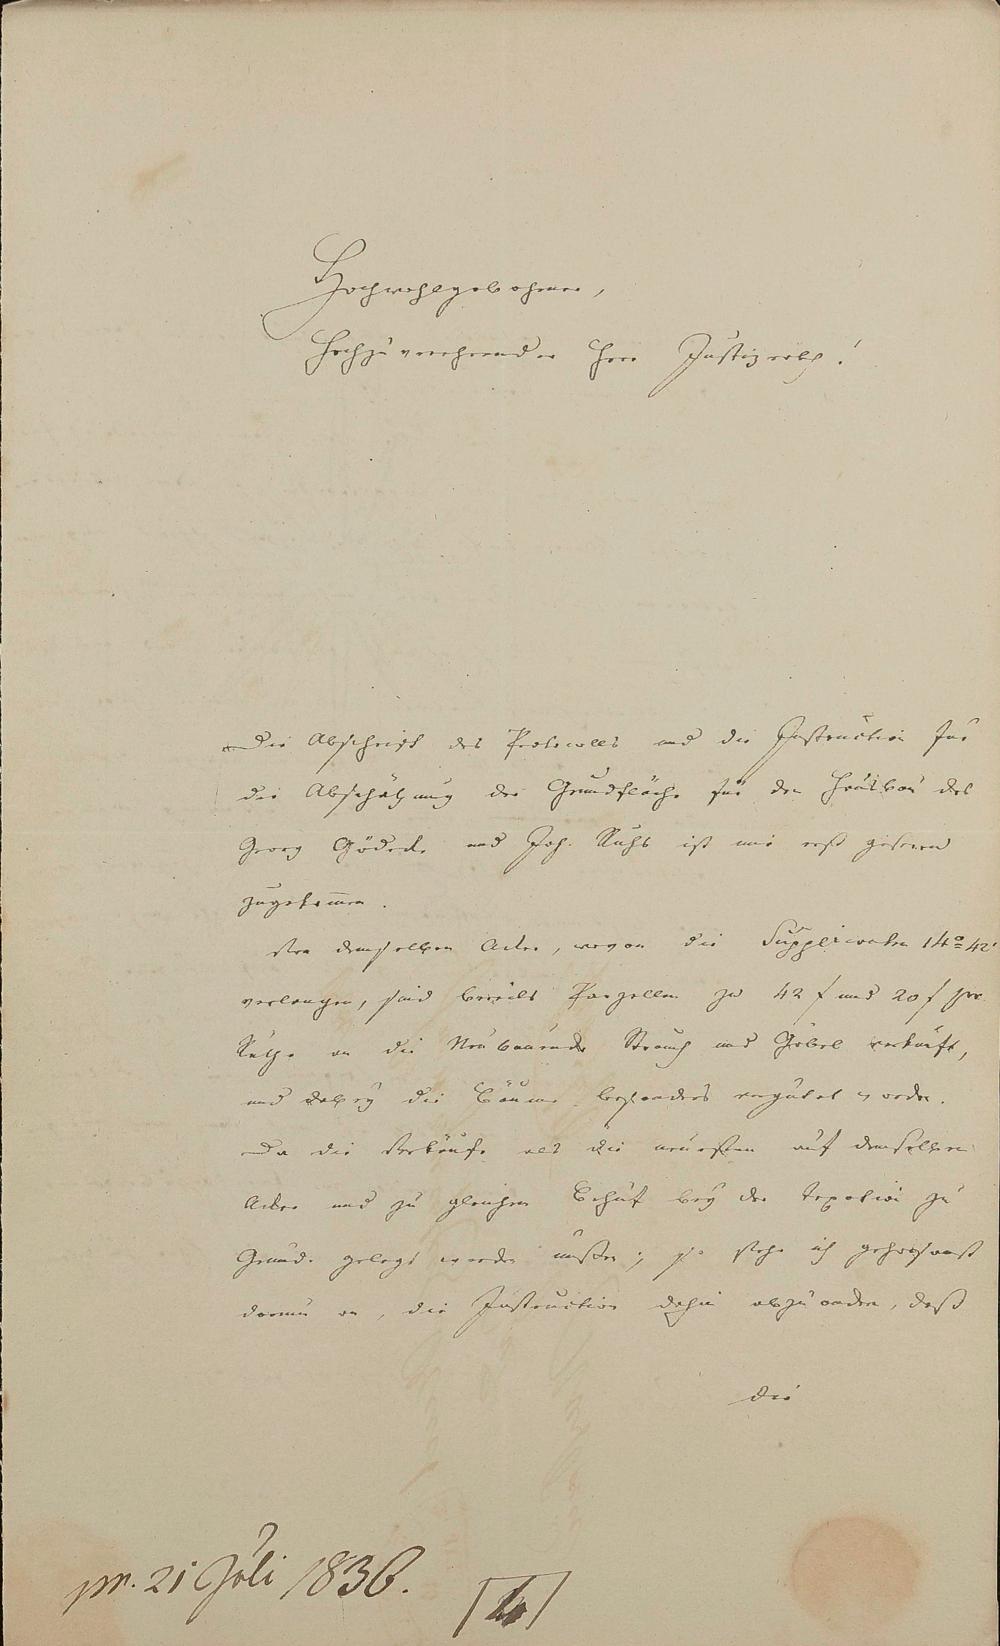 Hochwohlgebohrner,
Hochzuverehrender Herr Justizrath!
Die Abschrift des Protocolls und die Instruction für
die Abschätzung der Grundfläche für den Hausbau des
Georg Gödecke und Joh. Kuhs ist mir erst gestern
zugekom̄en.
Von demselben Acker, wovon die Supplicanten 14° 42'
verlangen, sind bereits Parzellen zu 42 f und 20 f pro
Ruthe an die Neubauende Strauch und Göbel verkauft,
und dabey die Bäume besonders vergütet worden.
Da die Verkäufe als die neuesten auf demselben
Acker und zu gleichem Behuf bey der Taxation zu
Grunde gelegt werden müßen; so stehe ich gehorsamst
darum an, die Instruction dahin abzuändern, daß
die
pr. 21 Juli 1836.